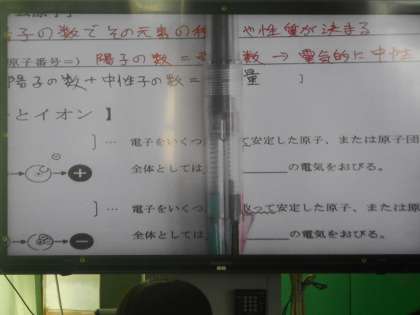 子の数でその元素の種 や性質が決まる
原子番号=) 陽子の数 = 数 → 電気的に中性
陽子の数+中性子の数= 量 ]
とイオン 】
] … 電子をいくつ て安定した原子、または原子団
全体としては の電気をおびる。
+
] … 電子をいくつ 取って安定した原子、または原
全体としては の電気をおびる。
−